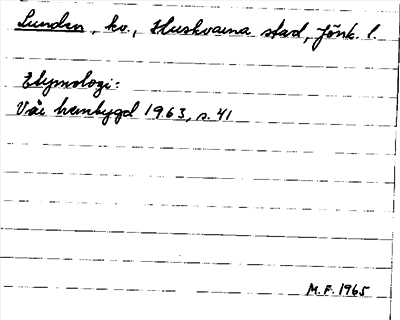 Lunden, kv., Huskvarna stad, Jönk. l.
Etymologi:
Vår hembygd 1963, s. 41
M.F. 1965